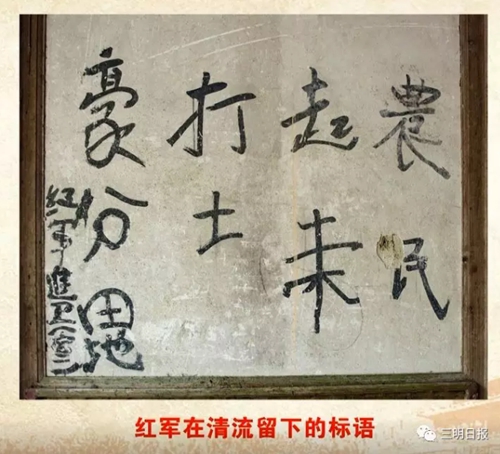 農民
起来
打土
豪分田地
红軍進
红军在清流留下的标语
三明日报